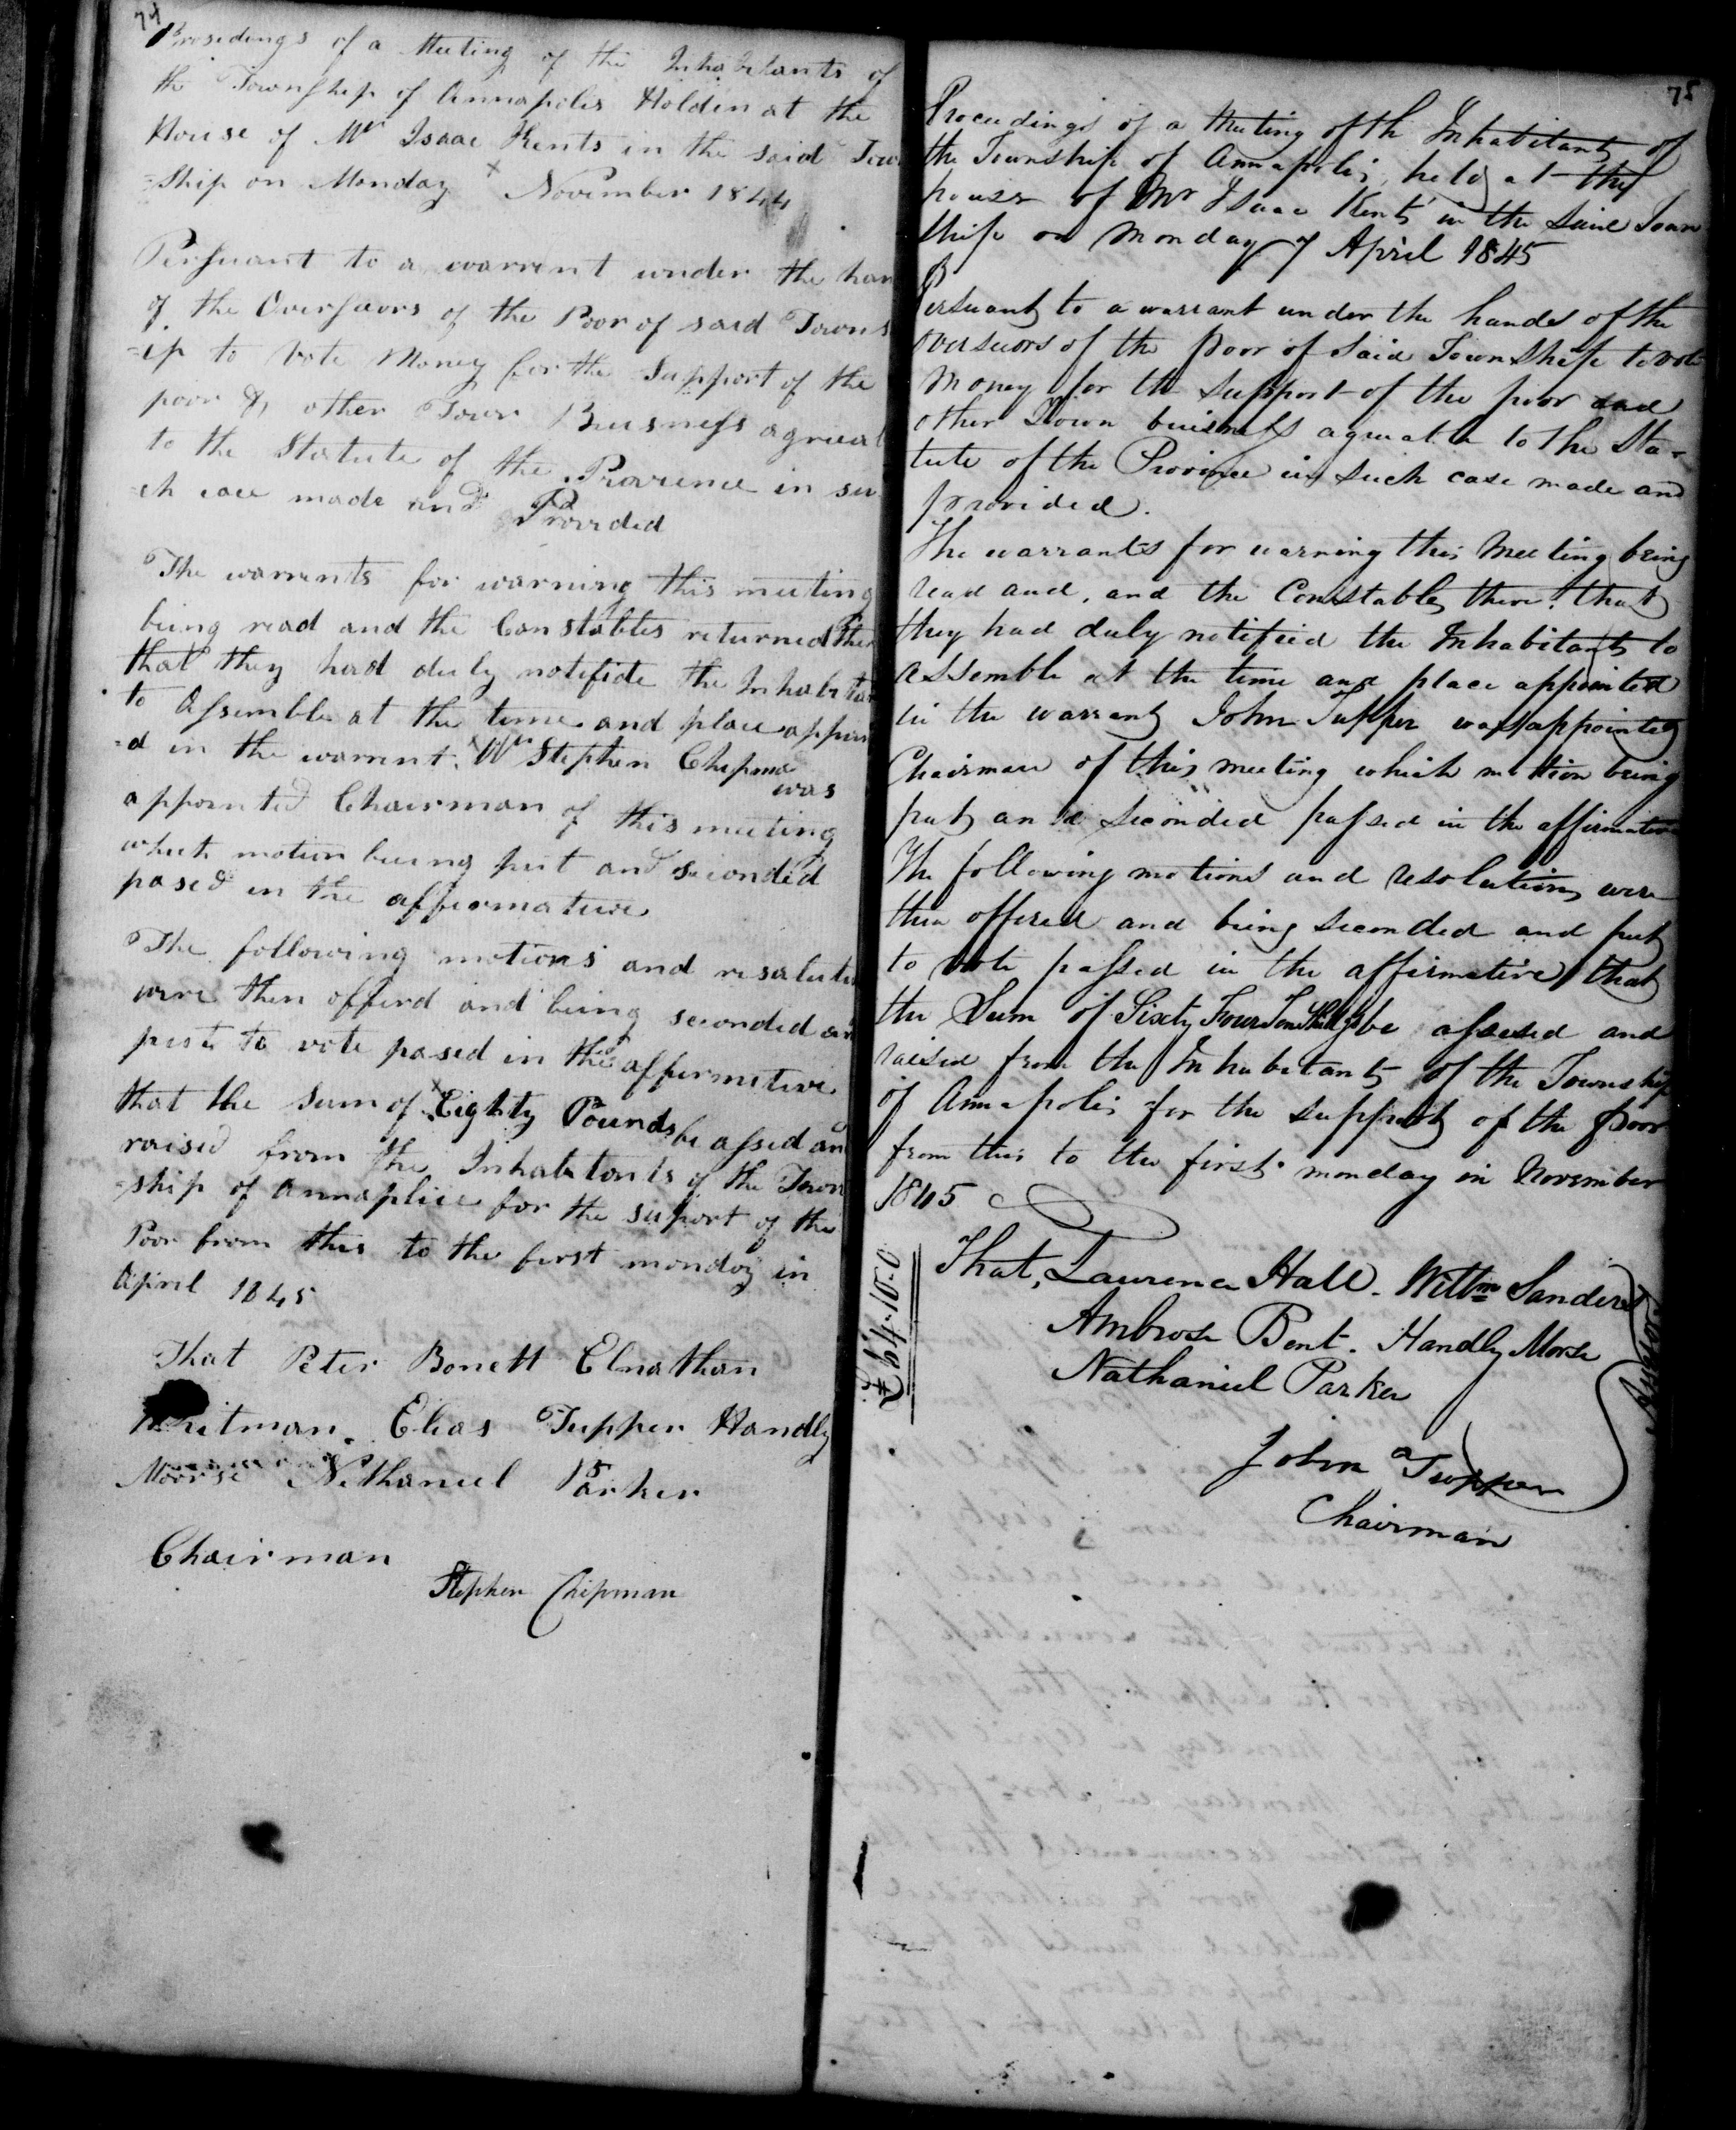 74
Prosedings of a Meeting of the Inhabitants of
the Township of Annapolis Holden at the
House of Mr Isaac Kents in the said Tow
-ship on Monday x November 1844
Persuant to a warrent under the han
of the Oversears of the Poor of said Towns
-ip to Vote Money for the Support of the
poor & other Town Buisness agreeal
to the Statute of the Provence in su
-ch case made and Provided
The warrents for warning this meeting
being read and the Constables returned
that they had duly notifide the Inhabitan
to Assemble at the time and place appoin
-d in the warrent. Mr Stephen Chipman
was
appointed Chairman of this meeting
which motion being put and seconded
pased in the affermative
The following motions and resolutio
were then offerd and being seconded an
put to vote pased in the affermative
that the sum of Eighty Pounds be assed an
raised from the Inhabitants of the Town
-ship of Annaplice for the suport of the
Poor from this to the first monday in
April 1845
That Peter Bonett Elnathan
Whitman. Elias Tupper Handly
Moorse Nethaneel Parker
Chairman
Stephen Chipman
75
Proceedings of a Meeting of th Inhabitants of
the Township of Annapolis, held at the
house of Mr Isaac Kents in the said Town
ship on Monday 7 April 1845
Persuant to a warrant under the hands of the
overseers of the poor of said Township to vote
money for the support of the poor and
other Town buisness agreeable to the Sta-
tute of the Province in such case made and
provided.
The warrants for warning this Meeting being
read and, and the Constables there that
they had duly notifeid the Inhabitants to
assemble at the time and place appointed
in the warrant John Tupper was appointed
Chairman of this meeting which motion being
put and seconded passed in the affirmative
The following motions and resolutions were
then offered and being seconded and put
to vote passed in the affirmative that
the Sum of Sixty Four Ten Shillgs be assesed and
raised from the Inhabitants of the Township
of Annapolis for the support of the poor
from this to the first monday in November
1845
£64.10.0
That, Lawrence Hall. Willm Sanders
Ambrose Bent. Handly Morse
Nathaniel Parker
John Tupper
Chairman